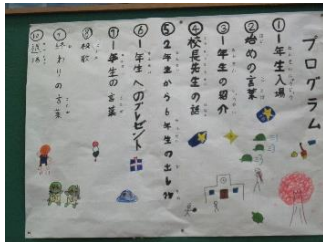 プログラム
① 1年生入場
② 始めの言葉
③ 1年生の紹介
④ 校長先生の話
⑤ 2年生から6年生の出し物
⑥ 1年生へのプレゼント
⑦ 1年生の言葉
⑧ 校歌
⑨ 終わりの言葉
⑩ 退場